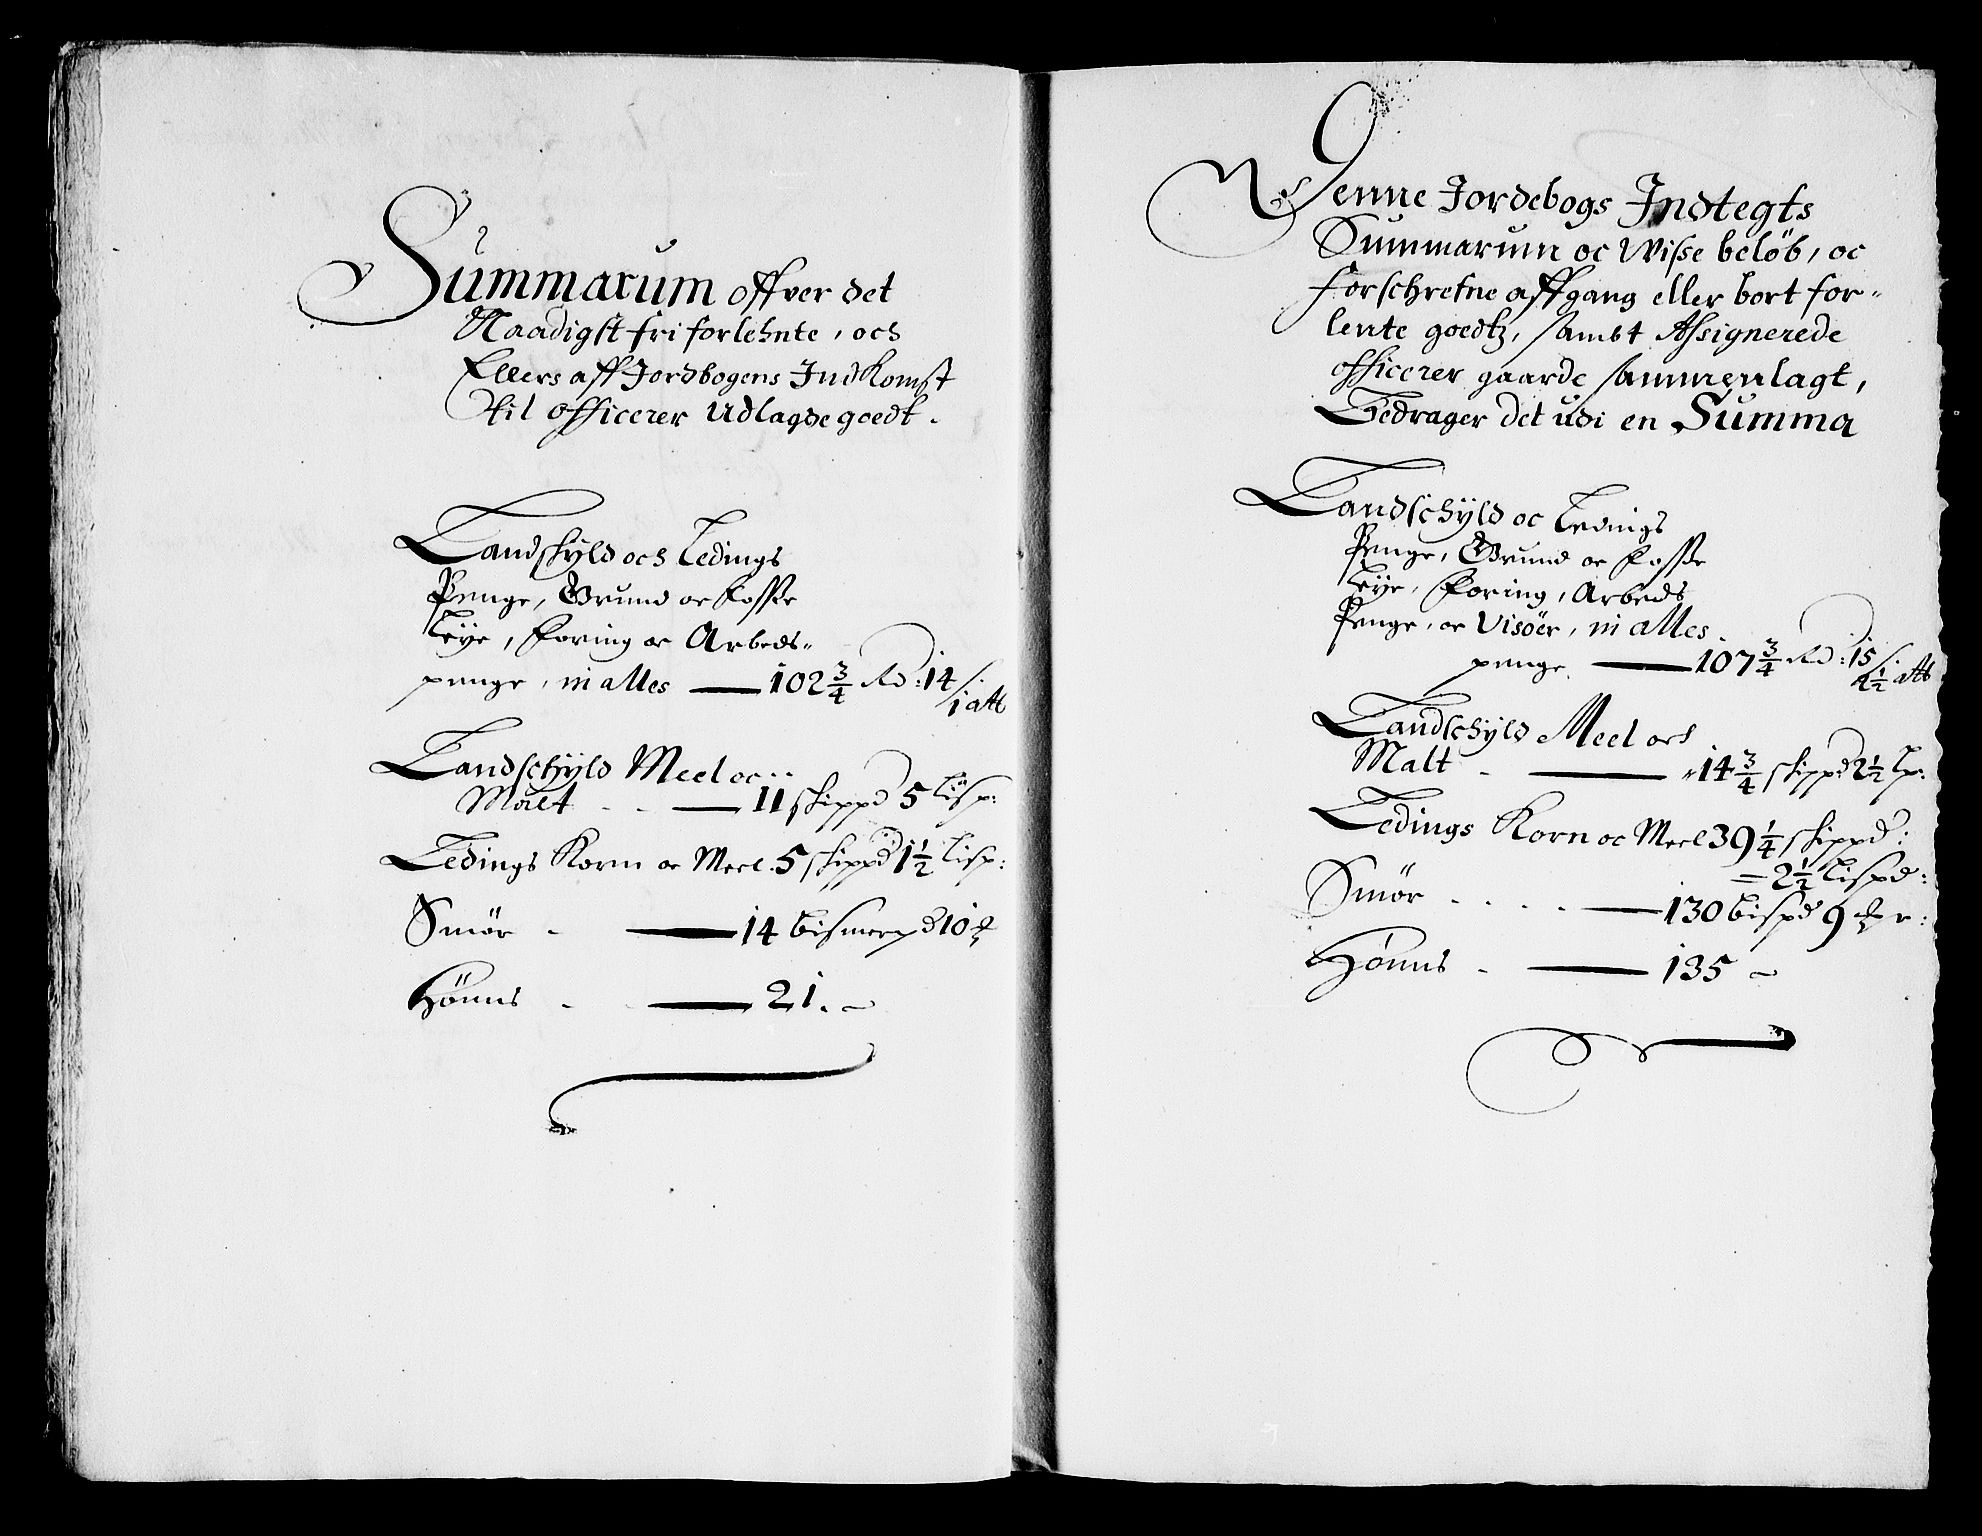 Summarum offver det
Naadigst fri forlehnte, och
Ellers aff Jordbogens Indkomst
til officerer udlagde goedt.
Landskyld och Ledings
Penge, Grund oc Fosse
leye, Foring oc Arbeds-
penge, in alles — 102 3/4 Rd: 14 s.
1 alb
Landschyld Meel oc
Malt - - — 11 skippd 5 lisp:
Ledings Korn oc Meel. 5 skippd 1 1/2 lisp:
Smør - — 14 bismerpd 10 
Hønns - — 21. -
Denne Jordebogs Indtegts
Summarum oc Wisse beløb, oc
forschrefne affgang eller bort for-
lente goedtz, sambt Assignerede
officerer gaarde sammenlagt,
Bedrager det udi en Summa
Landschyld oc Ledings
Penge, Grund oc Fosse
leye, Foring, Arbeds
Penge, oc Visöer, in alles
penge. — 107 3/4 Rd: 15 s.
4 1/2 alb
Landschyld Meel och
Malt - — 14 3/4 skippd 2 1/2 lp:
Ledings Korn oc Meel 39 1/4 skippd:
= 2 1/2 lispd:
Smør - - - - — 130 bispd 9
Hønns - — 135 -